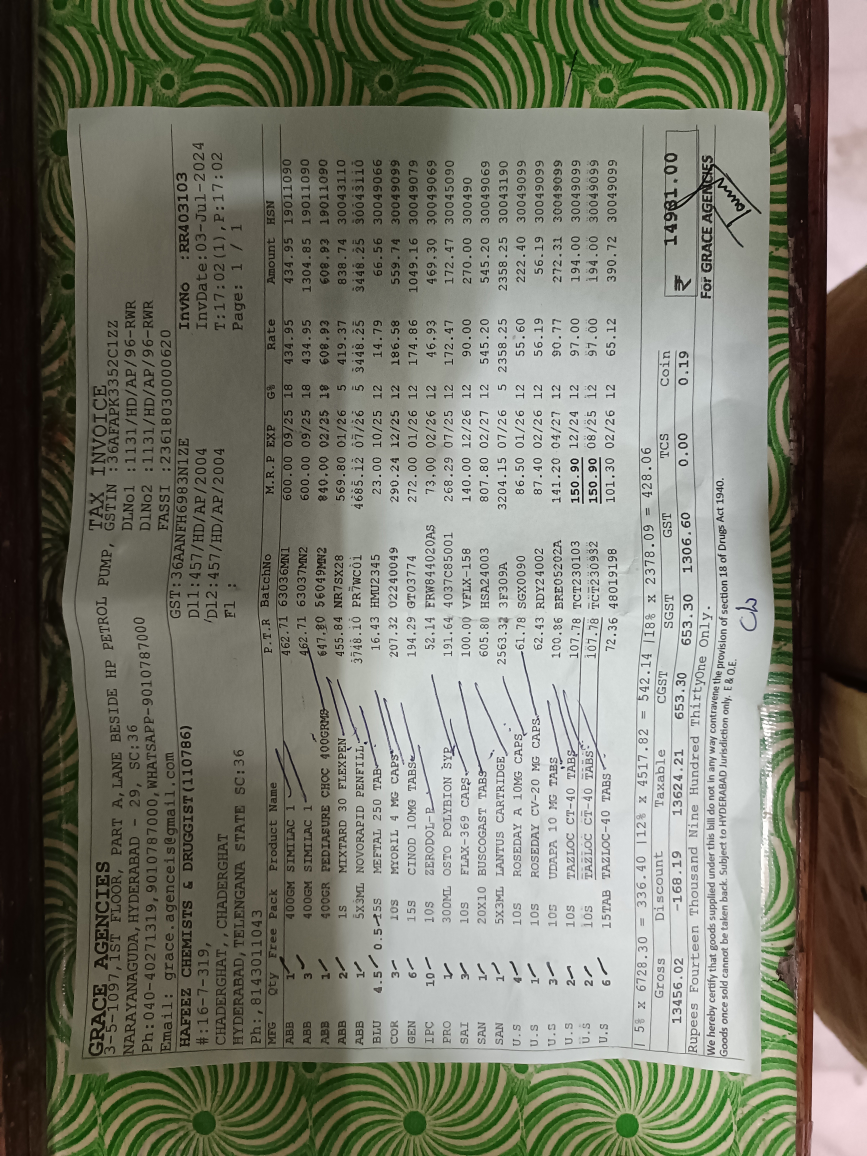 GRACE AGENCIES TAX INVOICE
3-5-1097,1ST FLOOR, PART A,LANE BESIDE HP PETROL PUMP, GSTIN :36AFAPK3352C1ZZ
NARAYANAGUDA,HYDERABAD - 29, SC:36 DLNo1 :1131/HD/AP/96-RWR
Ph:040-40271319,9010787000,WHATSAPP-9010787000 DlNo2 :1131/HD/AP/96-RWR
Email: grace.agenceis@gmail.com FASSI :23618030000620
HAFEEZ CHEMISTS & DRUGGIST(110786) GST:36AANFH6983N1ZE InvNo :RR403103
#:16-7-319, Dl1:457/HD/AP/2004 InvDate:03-Jul-2024
CHADERGHAT,,CHADERGHAT 'Dl2:457/HD/AP/2004 T:17:02(1),P:17:02
HYDERABAD,TELENGANA STATE SC:36 Fl : Page: 1 / 1
Ph:,8143011043
MFG Qty Free Pack Product Name P.T.R BatchNo M.R.P EXP G% Rate Amount HSN
ABB 1 400GM SIMILAC 1 462.71 63036MN1 600.00 09/25 18 434.95 434.95 19011090
ABB 3 400GM SIMILAC 1 462.71 63037MN2 600.00 09/25 18 434.95 1304.85 19011090
ABB 1 400GR PEDIASURE CHOC 400GRMS 647.80 56049MN2 840.00 02/25 18 608.93 608.93 19011090
ABB 2 1S MIXTARD 30 FLEXPEN 455.84 NR7SX28 569.80 01/26 5 419.37 838.74 30043110
ABB 1 5X3ML NOVORAPID PENFILL 3748.10 PR7WC01 4685.12 07/26 5 3448.25 3448.25 30043110
BLU 4.5 0.5 15S MEFTAL 250 TAB 16.43 HMU2345 23.00 10/25 12 14.79 66.56 30049066
COR 3 10S MYORIL 4 MG CAPS 207.32 02240049 290.24 12/25 12 186.58 559.74 30049099
GEN 6 15S CINOD 10MG TABS 194.29 GT03774 272.00 01/26 12 174.86 1049.16 30049079
IPC 10 10S ZERODOL-P 52.14 FRW844020AS 73.00 02/26 12 46.93 469.30 30049069
PRO 1 300ML OSTO POLYBION SYP 191.64 4037C85001 268.29 07/25 12 172.47 172.47 30045090
SAI 3 10S FLAX-369 CAPS 100.00 VFLX-158 140.00 12/26 12 90.00 270.00 300490
SAN 1 20X10 BUSCOGAST TABS 605.80 HSA24003 807.80 02/27 12 545.20 545.20 30049069
SAN 1 5X3ML LANTUS CARTRIDGE 2563.32 3F309A 3204.15 07/26 5 2358.25 2358.25 30043190
U.S 4 10S ROSEDAY A 10MG CAPS 61.78 SGX0090 86.50 01/26 12 55.60 222.40 30049099
U.S 1 10S ROSEDAY CV-20 MG CAPS 62.43 RDY24002 87.40 02/26 12 56.19 56.19 30049099
U.S 3 10S UDAPA 10 MG TABS 100.86 BRE05202A 141.20 04/27 12 90.77 272.31 30049099
U.S 2 10S TAZLOC CT-40 TABS 107.78 TCT230103 150.90 12/24 12 97.00 194.00 30049099
U.S 2 10S TAZLOC CT-40 TABS 107.78 TCT230932 150.90 08/25 12 97.00 194.00 30049099
U.S 6 15TAB TAZLOC-40 TABS 72.36 48019198 101.30 02/26 12 65.12 390.72 30049099
| 5% x 6728.30 = 336.40 |12% x 4517.82 = 542.14 |18% x 2378.09 = 428.06
Gross Discount Taxable CGST SGST GST TCS Coin
13456.02 -168.19 13624.21 653.30 653.30 1306.60 0.00 0.19 ₹ 14931.00
Rupees Fourteen Thousand Nine Hundred ThirtyOne Only.
For GRACE AGENCIES
We hereby certify that goods supplied under this bill do not in any way contravene the provision of section 18 of Drugs Act 1940.
Goods once sold cannot be taken back. Subject to HYDERABAD Jurisdiction only. E & O.E.